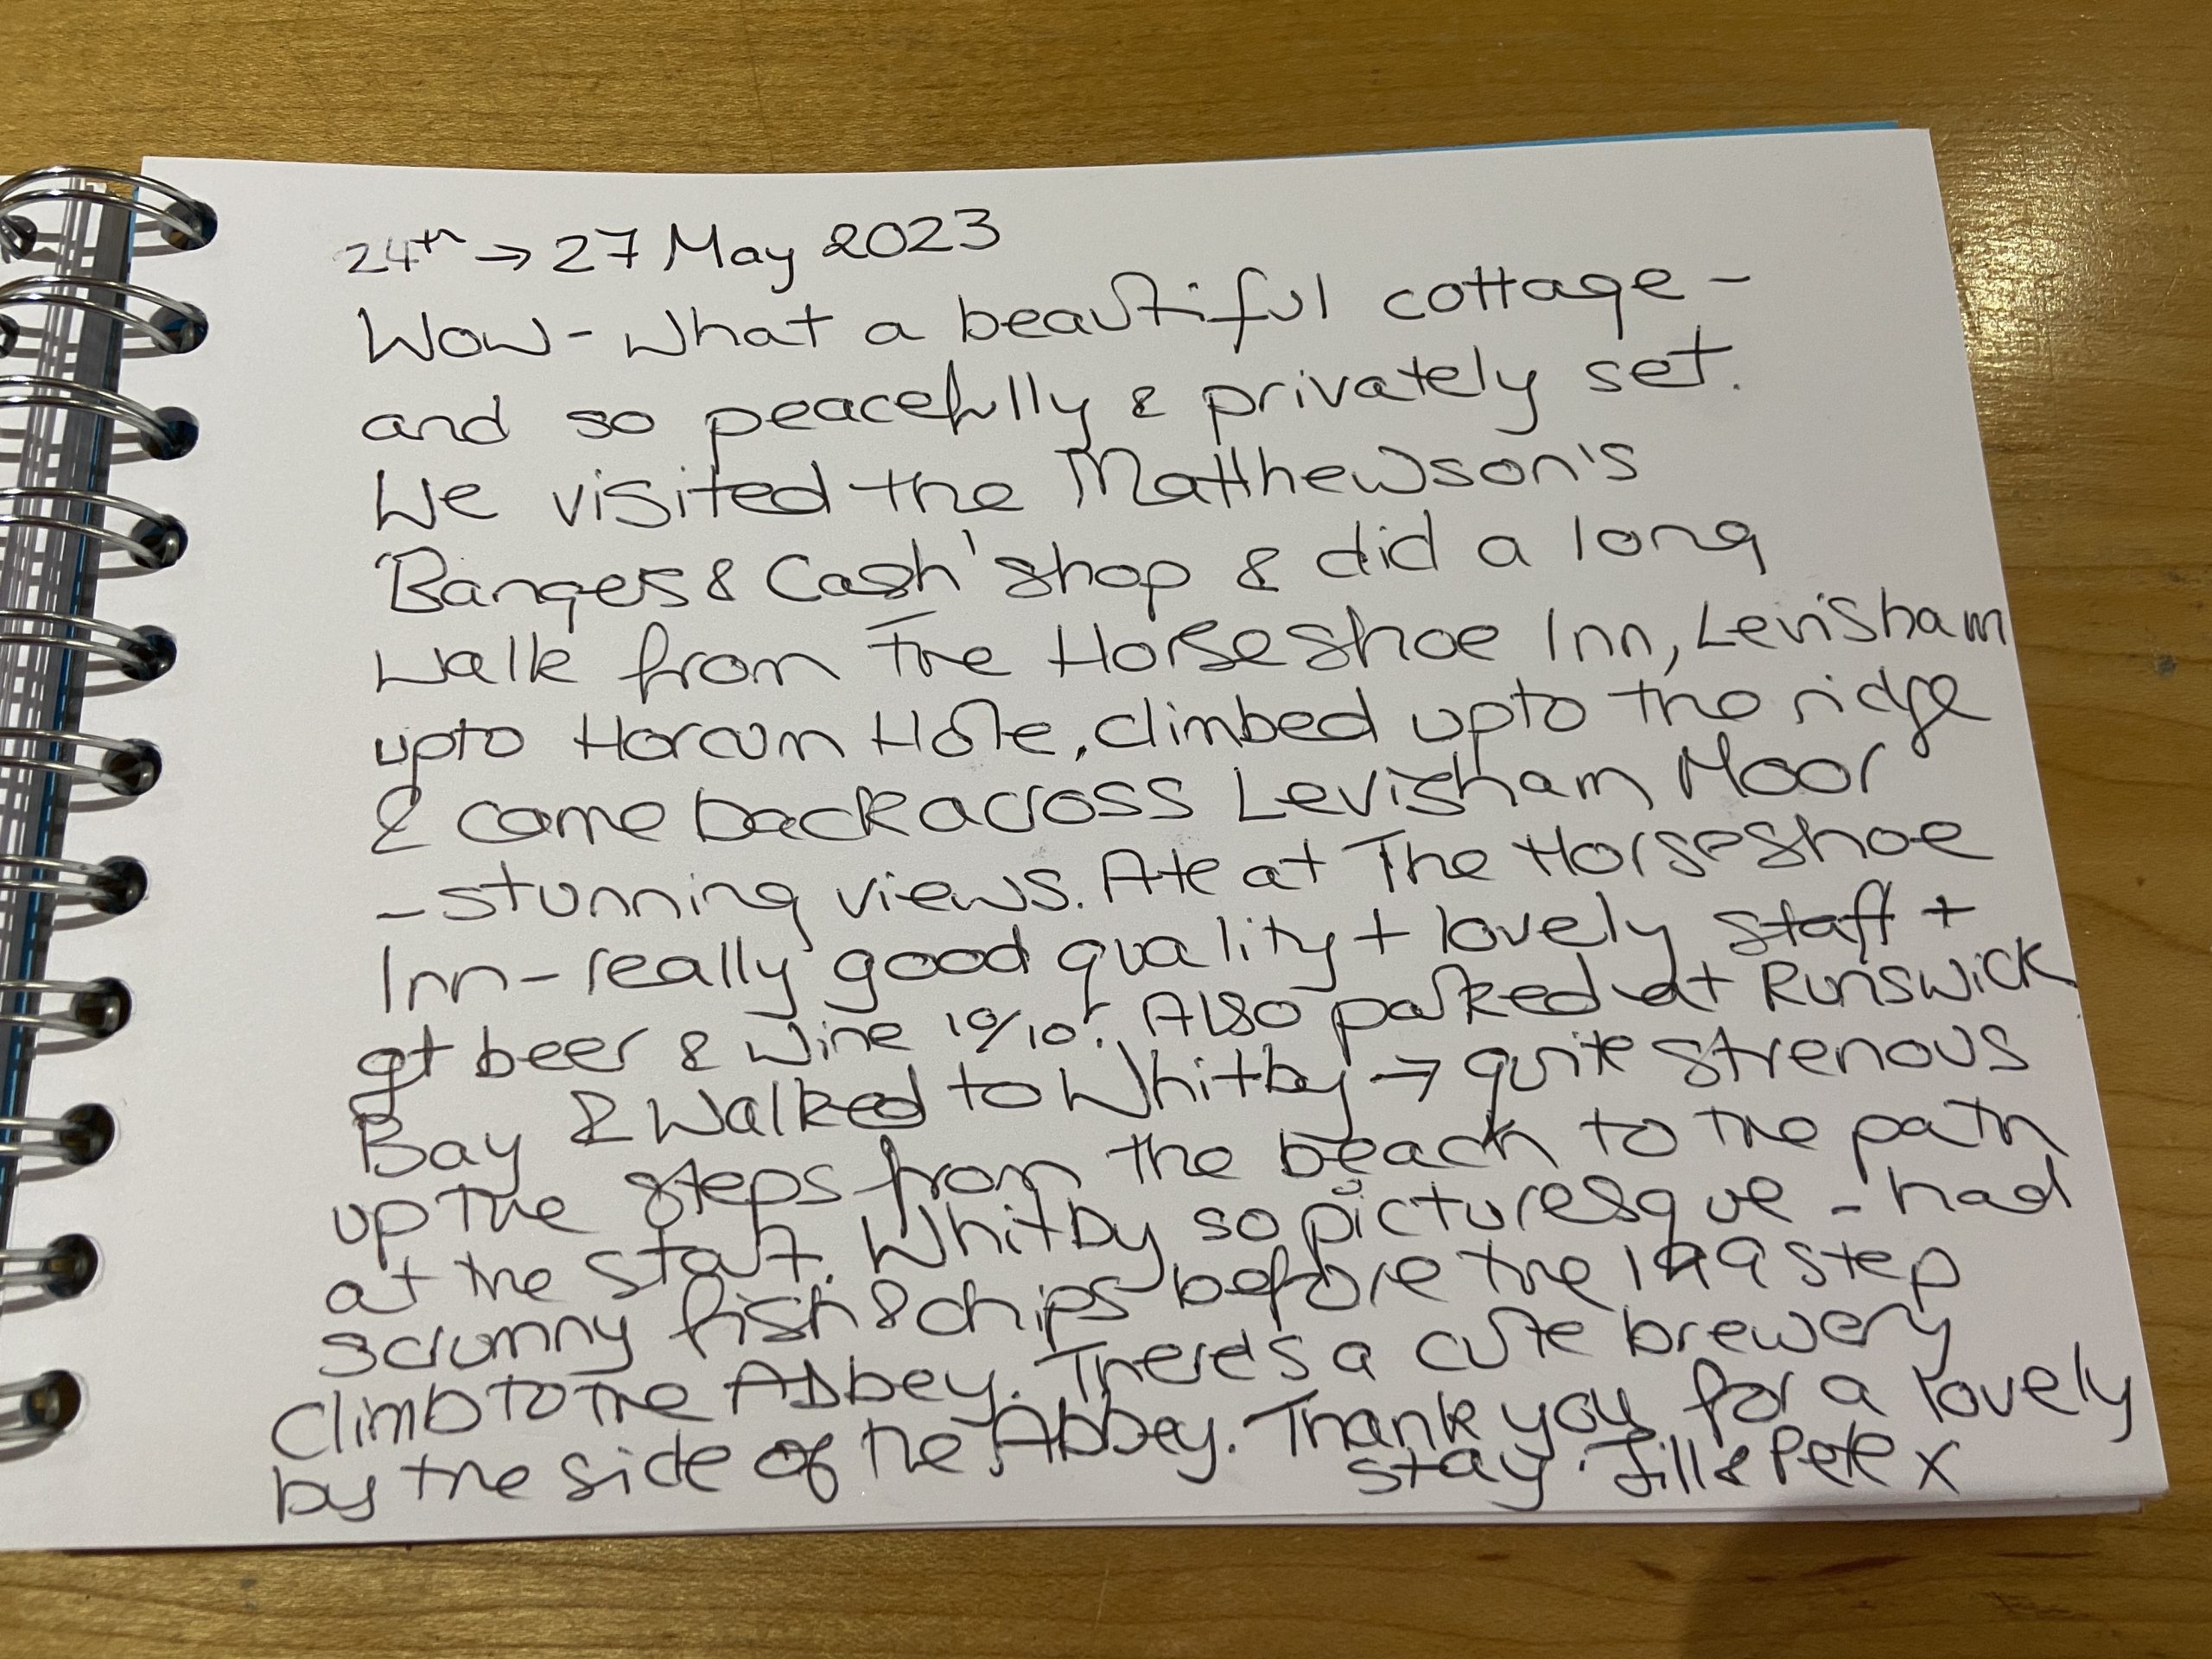 24th → 27 May 2023
Wow - what a beautiful cottage -
and so peacefully & privately set.
We visited the Matthewson's
'Bangers & Cash' shop & did a long
walk from The Horseshoe Inn, Levisham
upto Horcum Hole, climbed upto the ridge
& came back across Levisham Moor
- stunning views. Ate at The Horseshoe
Inn - really good quality + lovely staff +
gt beer & wine 10/10! Also parked at Runswick
Bay & walked to Whitby → quite strenous
up the steps from the beach to the path
at the start. Whitby so picturesque - had
scrummy fish & chips before the 199 step
climb to the Abbey. There's a cute brewery
by the side of the Abbey. Thank you for a lovely
stay. Jill & Pete x